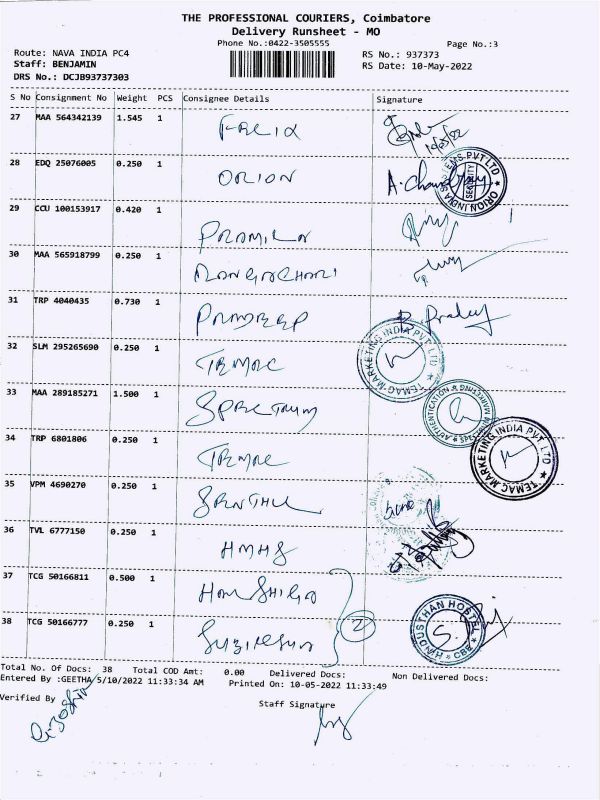 THE PROFESSIONAL COURIERS, Coimbatore
Delivery Runsheet - MO
Phone No.:0422-3505555
Page No.:3
Route: NAVA INDIA PC4
Staff: BENJAMIN
DRS No.: DCJB93737303
RS No.: 937373
RS Date: 10-May-2022
S No Consignment No Weight PCS Consignee Details Signature
27 MAA 564342139 1.545 1
28 EDQ 25076005 0.250 1 ORION
ORION INDIA SYSTEMS PVT LTD SECURITY
29 CCU 100153917 0.420 1 PRAMILA
30 MAA 565918799 0.250 1 RANGACHARI
31 TRP 4040435 0.730 1 PRADEEP
32 SLM 295265690 0.250 1 TEMAC
TEMAC MARKETING INDIA PVT. LTD
33 MAA 289185271 1.500 1 SPECTRUM
AUTHENTICATION
34 TRP 6801806 0.250 1 TEMAC
TEMAC MARKETING INDIA PVT. LTD
35 VPM 4690270 0.250 1 SENTHIL
36 TVL 6777150 0.250 1 HMHS
37 TCG 50166811 0.500 1
38 TCG 50166777 0.250 1
2
HINDUSTHAN HOSTEL CBE
Total No. Of Docs: 38 Total COD Amt: 0.00 Delivered Docs: Non Delivered Docs:
Entered By :GEETHA 5/10/2022 11:33:34 AM Printed On: 10-05-2022 11:33:49
Verified By
Staff Signature